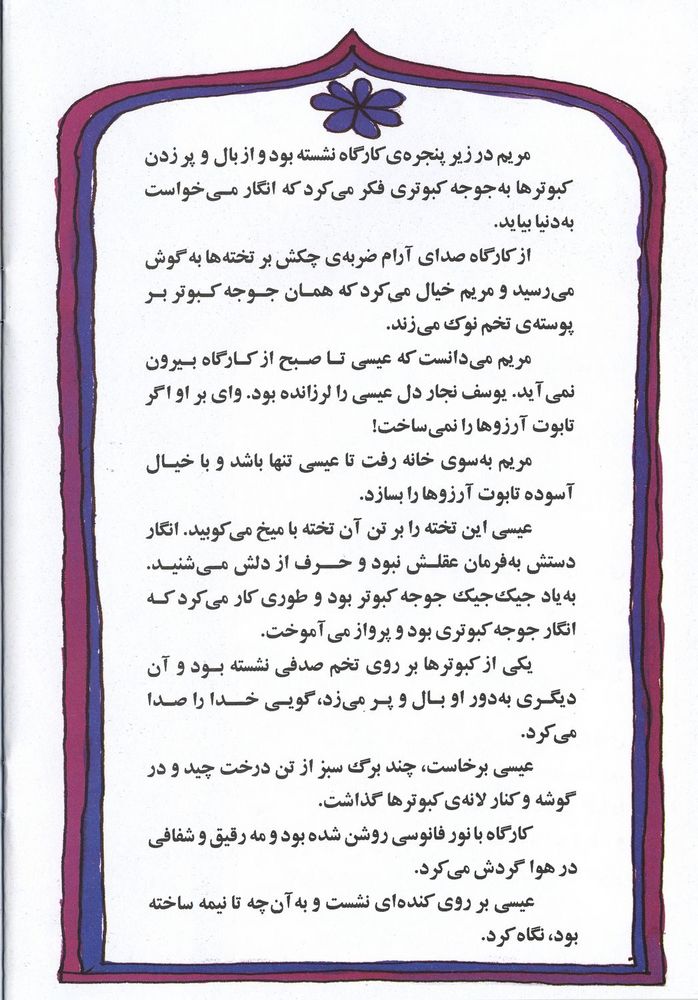 مریم در زیر پنجره‌ی کارگاه نشسته بود و از بال و پر زدن
کبوترها به‌جوجه کبوتری فکر می‌کرد که انگار مـی‌خواست
به‌دنیا بیاید.
از کارگاه صدای آرام ضربه‌ی چکش بر تخته‌ها به گوش
می‌رسید و مریم خیال می‌کرد که همان جـوجه کـبوتر بـر
پوسته‌ی تخم نوک می‌زند.
مریم می‌دانست که عیسی تـا صبح از کـارگاه بـیرون
نمی‌آید. یوسف نجار دل عیسی را لرزانده بود. وای بر او اگر
تابوت آرزوها را نمی‌ساخت!
مریم به‌سوی خانه رفت تا عیسی تنها باشد و با خیـال
آسوده تابوت آرزوها را بسازد.
عیسی این تخته را بر تن آن تخته با میخ می‌کوبید. انگار
دستش به‌فرمان عقلـش نبود و حـرف از دلش مـی‌شنیـد.
به‌یاد جیک‌جیک جوجه کبوتر بود و طوری کار می‌کرد کـه
انگار جوجه کبوتری بود و پرواز می‌آموخت.
یکی از کبوترها بر روی تخم صدفی نشسته بـود و آن
دیگـری به‌دور او بال و پـر می‌زد، گویـی خـدا را صدا
می‌کرد.
عیسی برخاست، چند برگ سبز از تن درخت چید و در
گوشه و کنار لانه‌ی کبوترها گذاشت.
کارگاه با نور فانوسی روشن شده بود و مه رقیق و شفافی
در هوا گردش می‌کرد.
عیسی بر روی کنده‌ای نشست و به آن‌چه تا نیمه ساخته
بود، نگاه کرد.